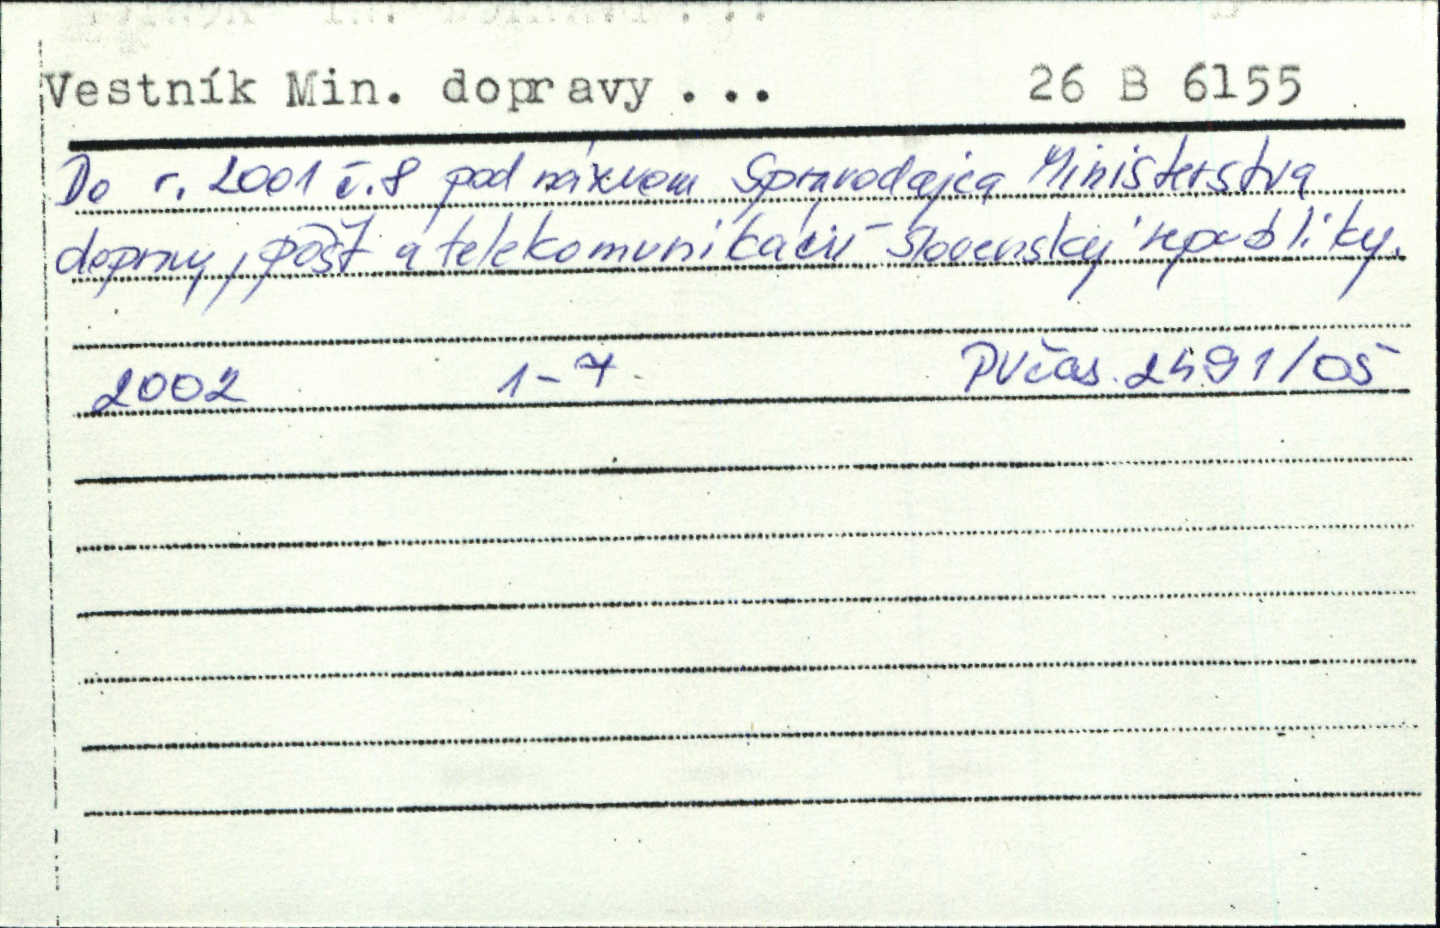 Vestník Min. dopravy ... 26 B 6155
Do r. 2001 č.8 pod názvom Spravodajca Ministerstva
dopravy, pôšt a telekomunikácií Slovenskej republiky.
2002 1-7 PVčas. 2491/05